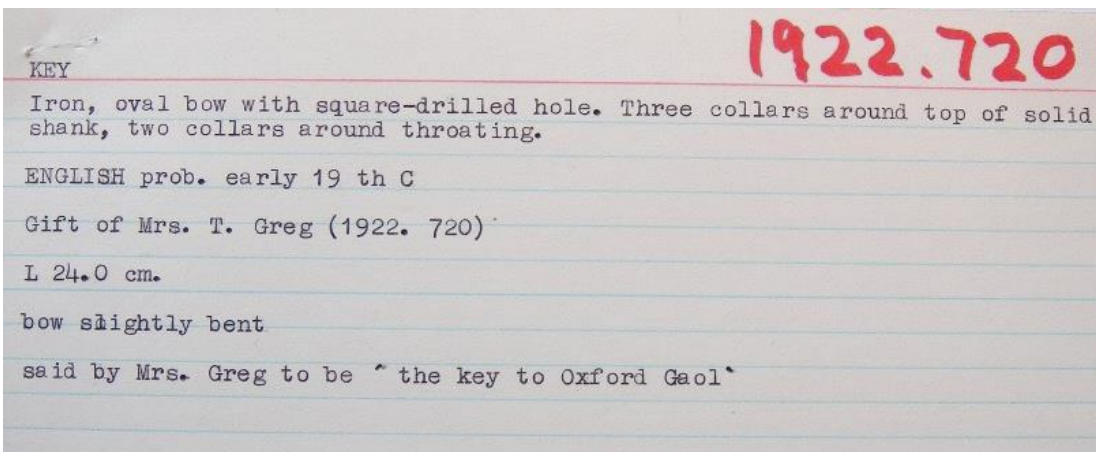 1922.720
KEY
Iron, oval bow with square-drilled hole. Three collars around top of solid
shank, two collars around throating.
ENGLISH prob. early 19 th C
Gift of Mrs. T. Greg (1922. 720)
L 24.0 cm.
bow slightly bent
said by Mrs. Greg to be ‸ the key to Oxford Gaol`